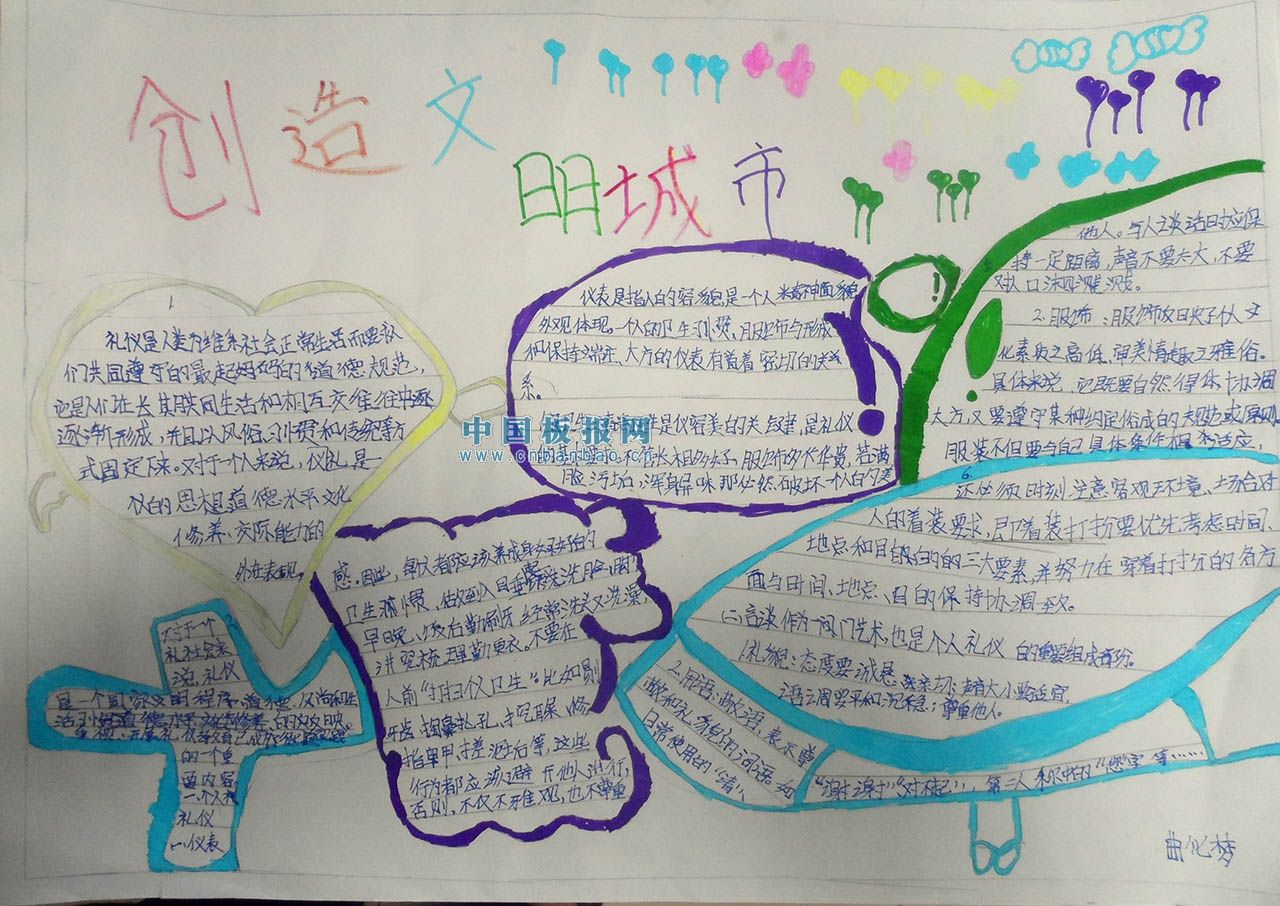 创造文
明城市
1
礼仪是人类为维系社会正常生活而要求人
们共同遵守的最起码的道德规范,
它是人们在长期共同生活和相互交往中逐
逐渐形成,并且以风俗、习惯和传统等方
式固定下来。对于一个人来说,仪礼是一
仪的思想道德水平文化
修养、交际能力的
外在表现,
对于一个
礼社会来
说,礼仪
是一个国家文明程度、道德
的一个重
要内容
一个人的
礼仪
(一)仪表
仪表是指人的容貌是一个人精神面貌
外观体现。一个人的卫生习惯、服饰与形成
和保持端正、大方的仪表有着着密切的关
系。
是仪容美的关键,是礼仪
长相多好,服饰多华贵,若满
脸污垢,浑身异味那必然破坏一个人的美
感。因此,每个人都应该养成良好的
卫生习惯,做到入目垂睡洗洗脸、脚
早晚、饭后勤刷牙经常洗头又洗澡,
讲究梳理勤更衣。不要在
人前“打扫仪卫生”比如剔
牙齿掏鼻孔、挖耳屎、修
指甲、搓泥垢等,这些
行为都应该避开他人进行,
否则,不仅不雅观,也不尊重
他人。与人谈话时应保
持一定距离,声音不要太大,不要
对人口沫四溅。
2.服饰:服饰反映了一个人文
化素质之高低,审美情趣之雅俗。
具体来说,它既要自然得体协调
大方,又要遵守某种约定俗成的规范或原则
服装不但要与自己具体条件相适应,
6.
还必须时刻注意客观环境、场合对
人的着装要求,即着装打扮要优先考虑时间、
地点和目的的三大要素,并努力在穿着打扮的各方
面与时间、地点、目的保持协调一致。
(二)言谈作为一门艺术,也是个人礼仪的重要组成部分。
1.礼貌:态度要诚恳、亲切;声音大小要适宜,
语调要平和沉稳;尊重他人。
2.用语:敬语,表示尊
敬和礼貌的词语。如
日常使用的“请”、
“谢谢”“对不起”,第二人称中的“您”字等……
曲化梦
中国板报网
www.cnbanbao.cn